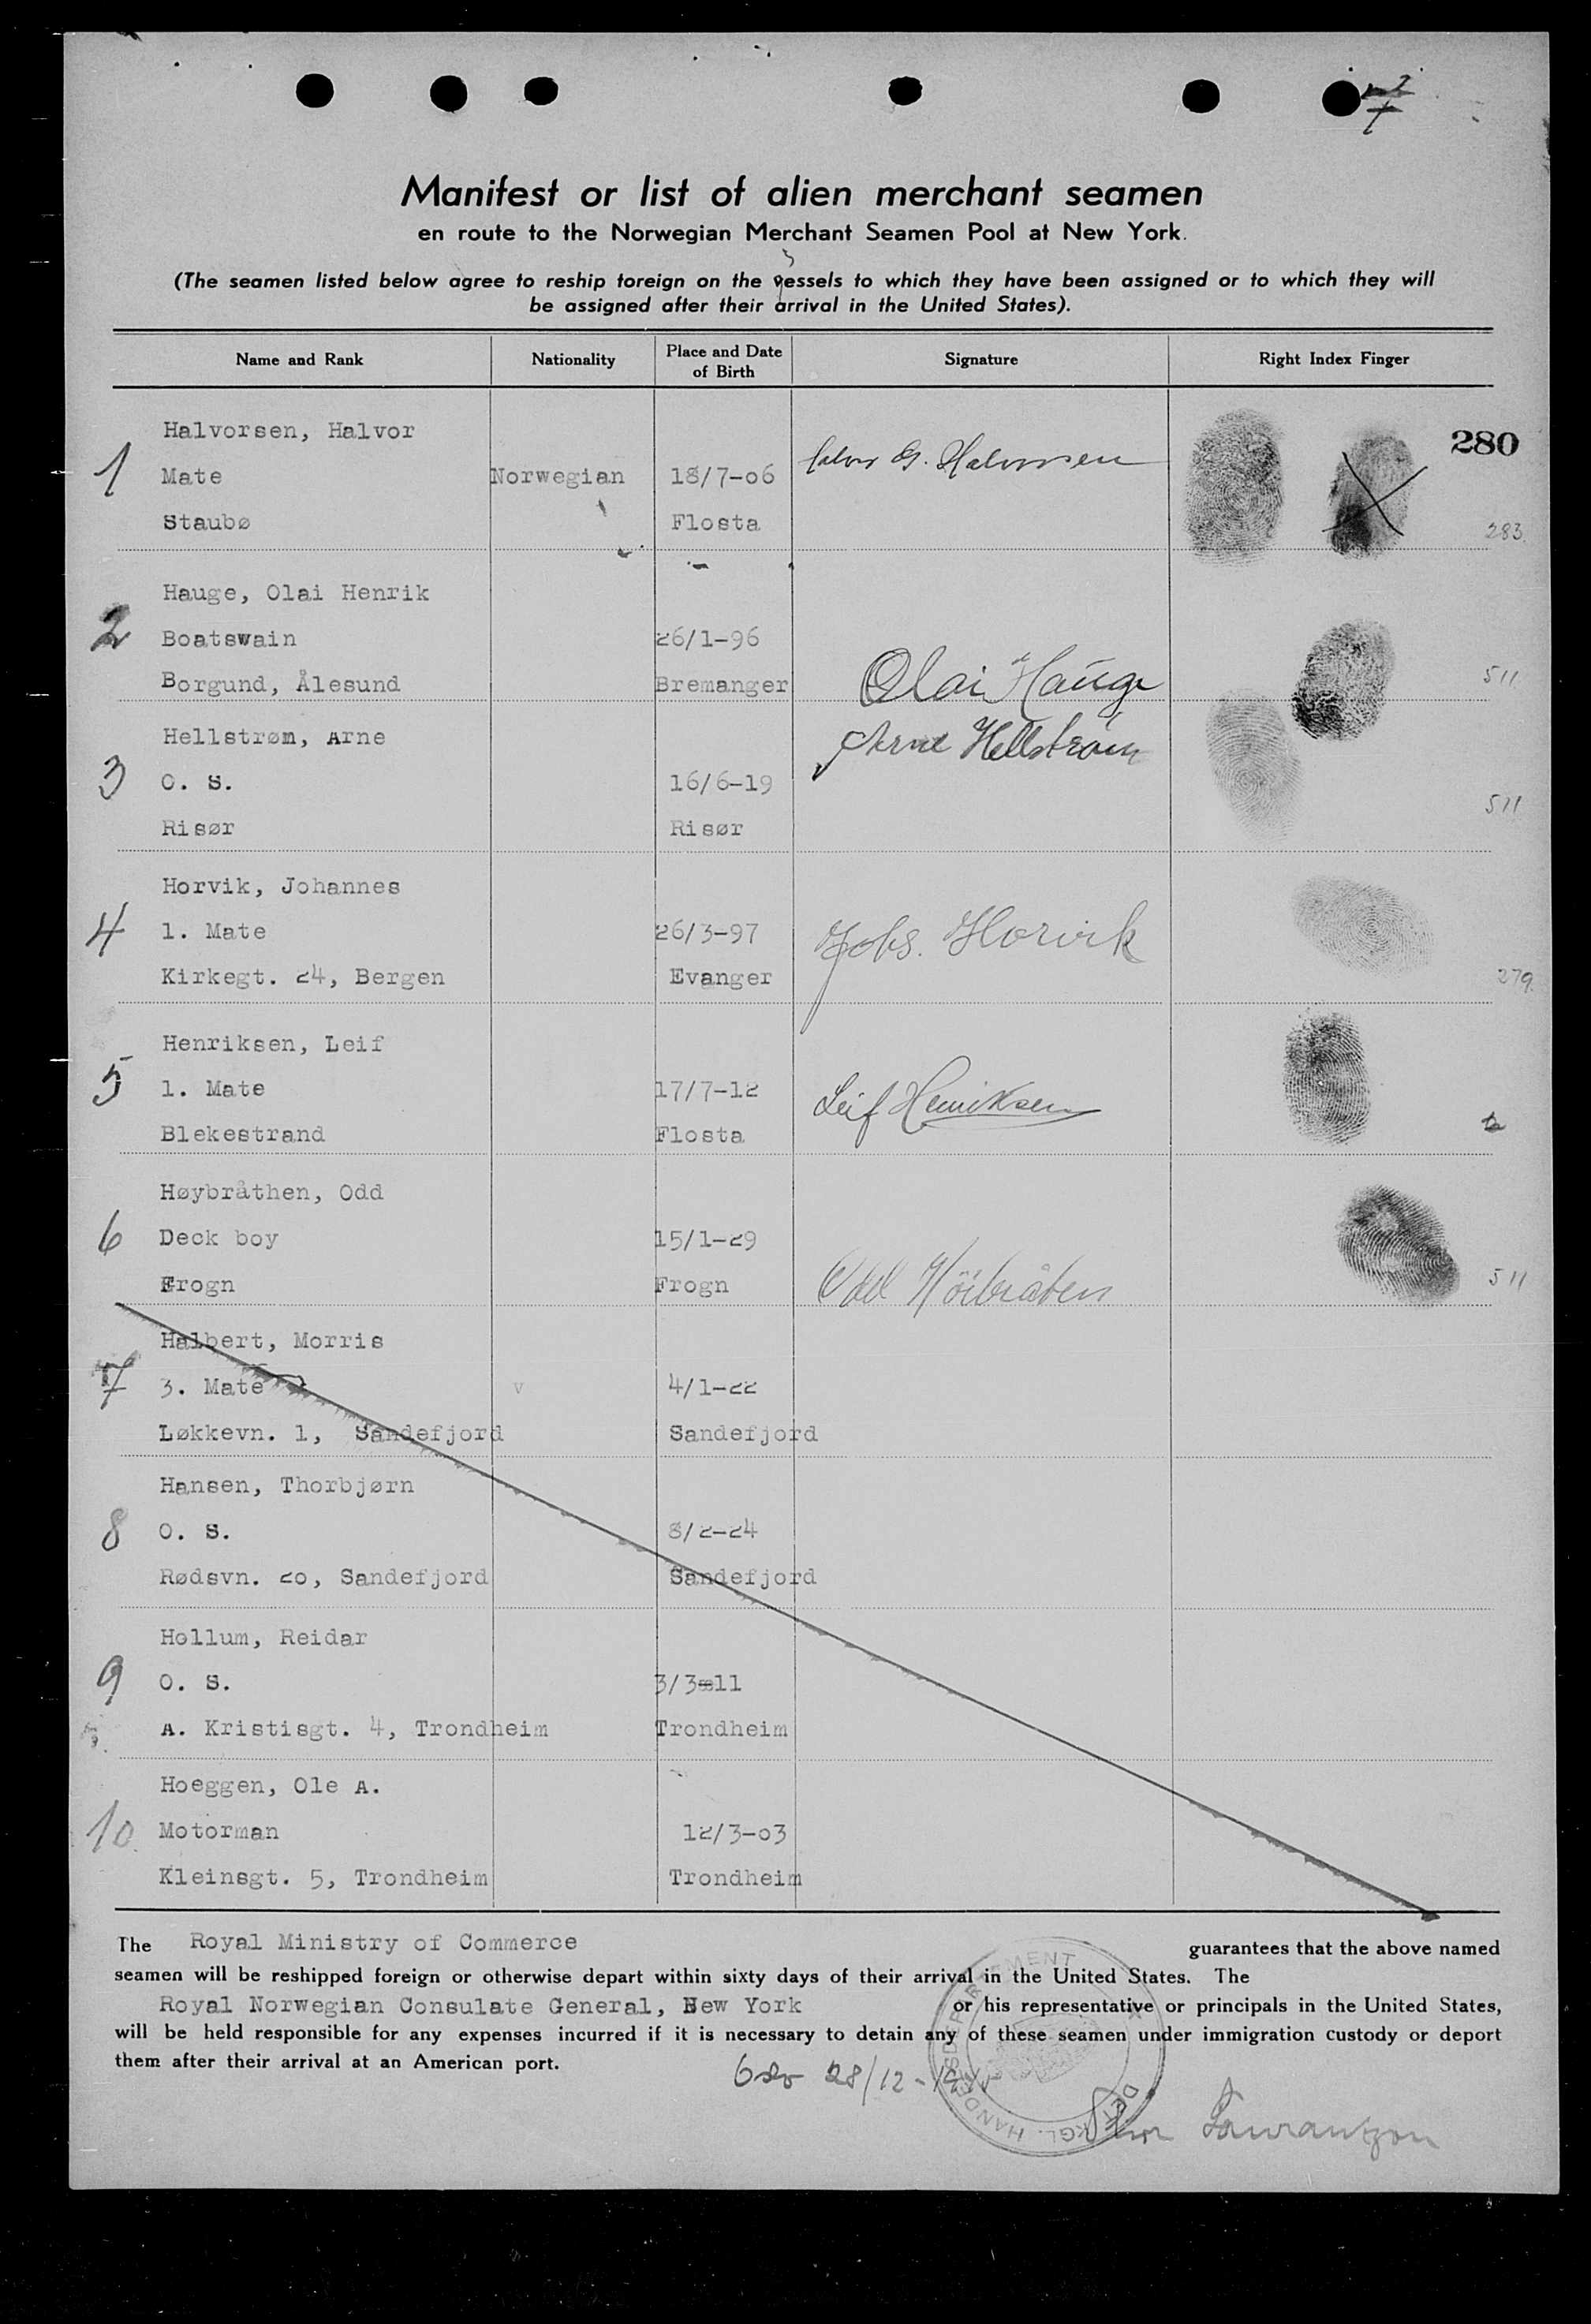 Manifest or list of alien merchant seamen
en route to the Norwegian Merchant Seamen Pool at New York.
(The seamen listed below agree to reship toreign on the vessels to which they have been assigned or to which they will
be assigned after their arrival in the United States).
Name and Rank Nationality Place and Date of Birth Signature Right Index Finger
280
Halvorsen, Halvor
1 Mate Norwegian 18/7-06 Halvor G. Halvorsen
Staubø Flosta 283.
Hauge, Olai Henrik
2 Boatswain 26/1-96
Borgund, Ålesund Bremanger Olai Hauge 511
Hellstrøm, Arne Arne Hellstrøm
3 O. S. 16/6-19
Risør Risør 511
Horvik, Johannes
4 1. Mate 26/3-97 Johs. Horvik
Kirkegt. 24, Bergen Evanger 279.
Henriksen, Leif
5 1. Mate 17/7-12 Leif Henriksen
Blekestrand Flosta
Høybråthen, Odd
6 Deck boy 15/1-29
Frogn Frogn Odd Höibråten 511
Halbert, Morris
7 3. Mate v 4/1-22
Løkkevn. 1, Sandefjord Sandefjord
Hansen, Thorbjørn
8 O. S. 8/2-24
Rødsvn. 20, Sandefjord Sandefjord
Hollum, Reidar
9 O. S. 3/3-11
A. Kristisgt. 4, Trondheim Trondheim
Hoeggen, Ole A.
10. Motorman 12/3-03
Kleinsgt. 5, Trondheim Trondheim
The Royal Ministry of Commerce guarantees that the above named
seamen will be reshipped foreign or otherwise depart within sixty days of their arrival in the United States. The
Royal Norwegian Consulate General, New York or his representative or principals in the United States,
will be held responsible for any expenses incurred if it is necessary to detain any of these seamen under immigration custody or deport
them after their arrival at an American port.
Oslo 28/12-
DET KGL. HANDELSDEPARTEMENT